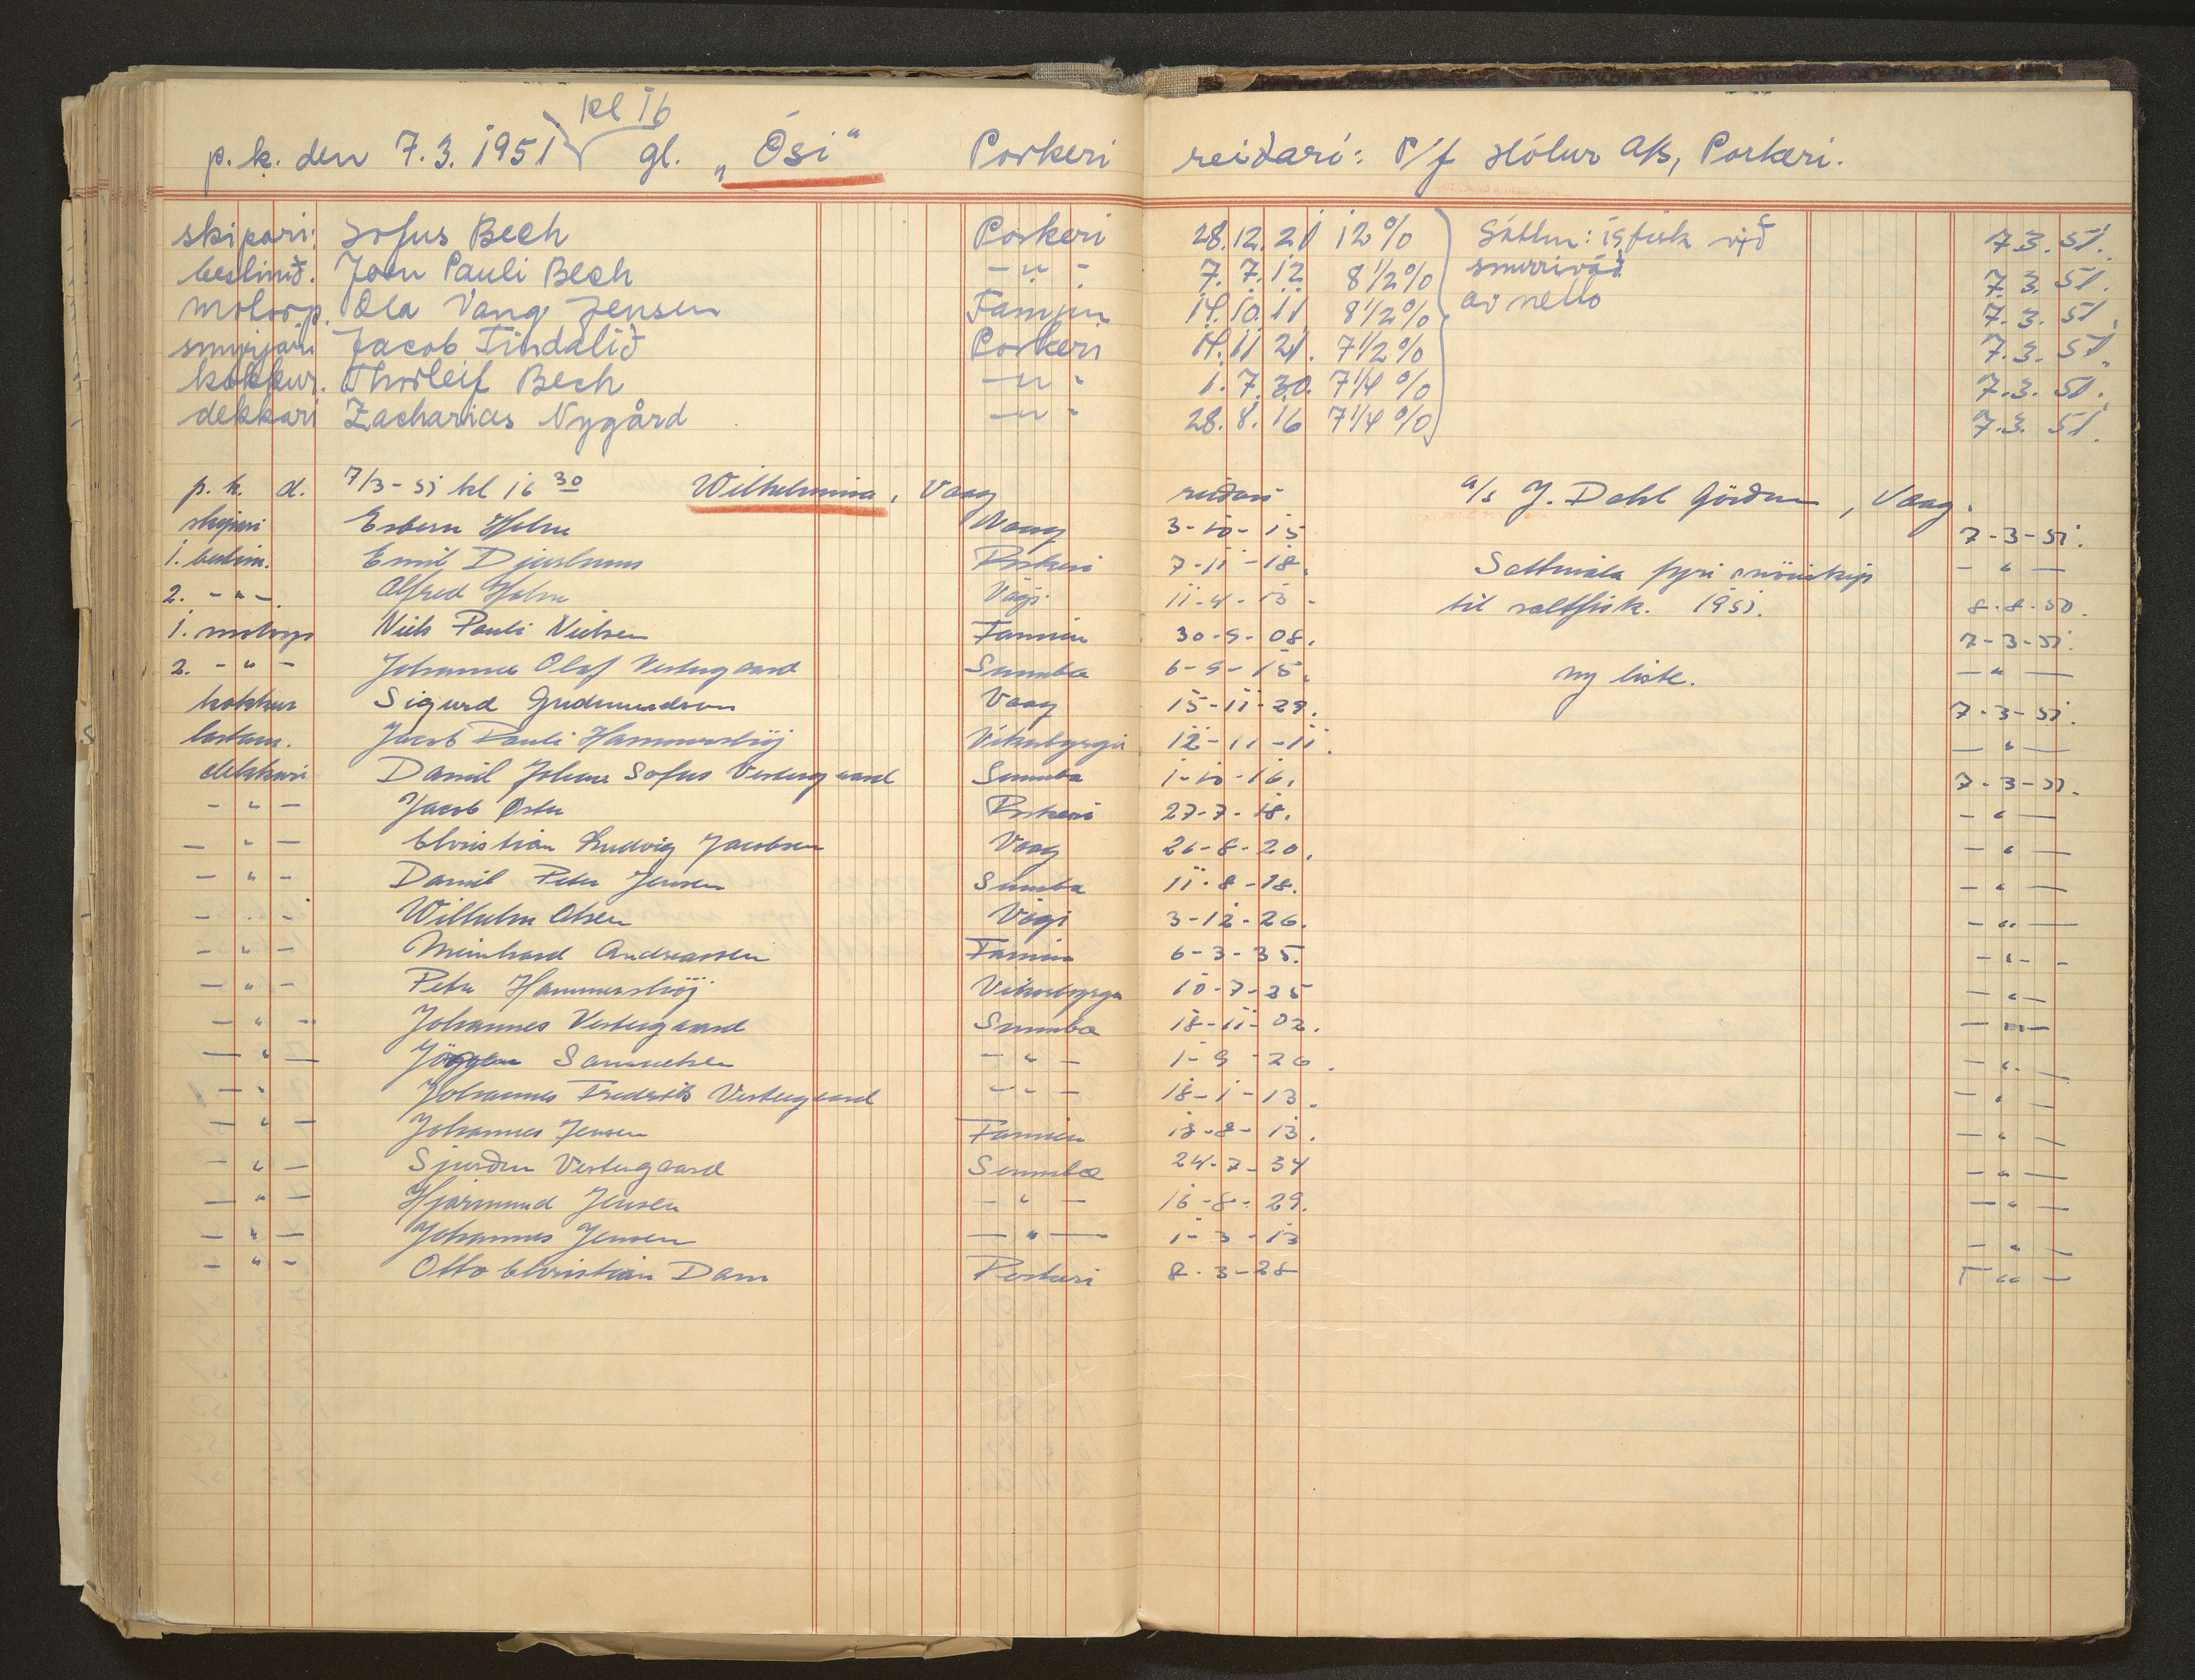 kl 16
p. k. den 7.3.1951 gl. „Ósi“ Porkeri reiðari: P/f Hólur A/S, Porkeri.
skipari: Sofus Bech Porkeri 28.12.21 12% Sáttm: ísfisk við 7.3.51.
bestimð. Joen Pauli Bech -"- 7.7.12 8 1/2% snurrivað 7.3.51.
motorp. Ola Vang Jensen Famjin 14.10.11 8 1/2% av netto 7.3.51.
smyrjari Jacob Tindalið Porkeri 14.11.21. 7 1/2% 7.3.51.
kokkur. Thorleif Bech -"- 1.7.30. 7 1/4% 7.3.51.
dekkari Zacharias Nygård -"- 28.8.16 7 1/4% 7.3.51.
p. k. d. 7/3-51 kl 16 30 Wilhelmina, Vaag reiðari a/s J. Dahl Görðum, Vaag.
skipari Esbern Holm Vaag 3-10-15 7-3-51.
1. bestm. Emil Djurhuus Porkeri 7-11-18. Sáttmála fyri snöriskip - " -
2. - " - Alfred Holm Vági 11-4-13 - til saltfisk. 1951. 8-8-50.
1. motorp Niels Pauli Nielsen Famien 30-9-08. 7-3-51.
2. - " - Johannes Olaf Vestergaard Sumba 6-9-15. ny liste. - " -
kokkur Sigurd Gudmundson Vaag 15-11-29. 7-3-51.
lastam. Jacob Pauli Hammershöj Vikarbyrgi 12-11-11. - " -
dekkari Daniel Johan Sofus Vestergaard Sumba 1-10-16. 7-3-51.
- " - Jacob Oster Porkeri 27-7-18. - " -
- " - Christian Ludvig Jacobsen Vaag 26-8-20. - " -
- " - Daniel Peter Jensen Sumba 11-8-18. - " -
- " - Wilhelm Olsen Vági 3-12-26. - " -
- " - Meinhard Andreassen Famien 6-3-35. - " -
- " - Peter Hammershöj Vikarbyrgi 10-7-25 - " -
- " - Johannes Vestergaard Sumba 18-11-02. - " -
- " - Jörgen Samuelsen - " - 1-9-26. - " -
- " - Johannes Fredrik Vestergaard - " - 18-1-13. - " -
- " - Johannes Jensen Famien 18-8-13. - " -
- " - Sjurdur Vestergaard Sumba 24-7-34 - " -
- " - Hjarmund Jensen - " - 16-8-29. - " -
- " - Johannes Jensen - " - 1-3-13 - " -
- " - Otto Christian Dam Porkeri 8-3-28 - " -